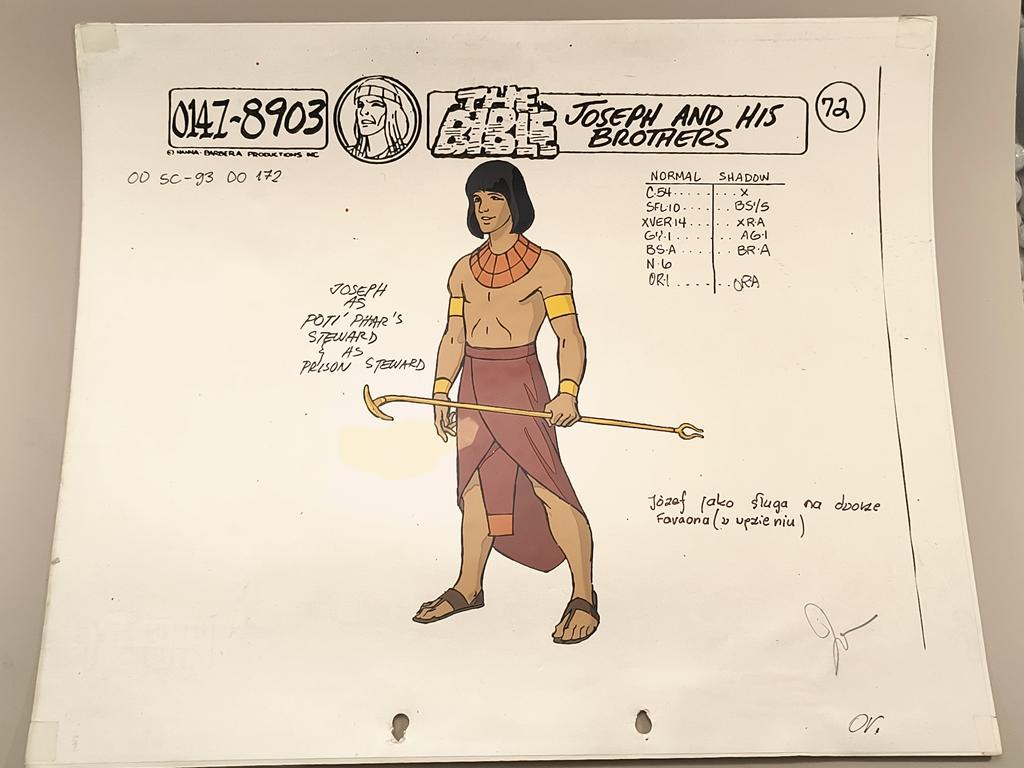 0147-8903
© HANNA-BARBERA PRODUCTIONS INC
THE BIBLE
JOSEPH AND HIS
BROTHERS
72
OD SC-93 DO 172
NORMAL SHADOW
C·54........X
SFL·10.......BS1/5
XVER14......XR·A
GY·1........AG·1
BS·A.......BR·A
N·6
OR·1.......ORA
JOSEPH
AS
POTI'PHAR'S
STEWARD
& AS
PRISON STEWARD
Józef jako sługa na dworze
Faraona (w więzieniu)
Or.